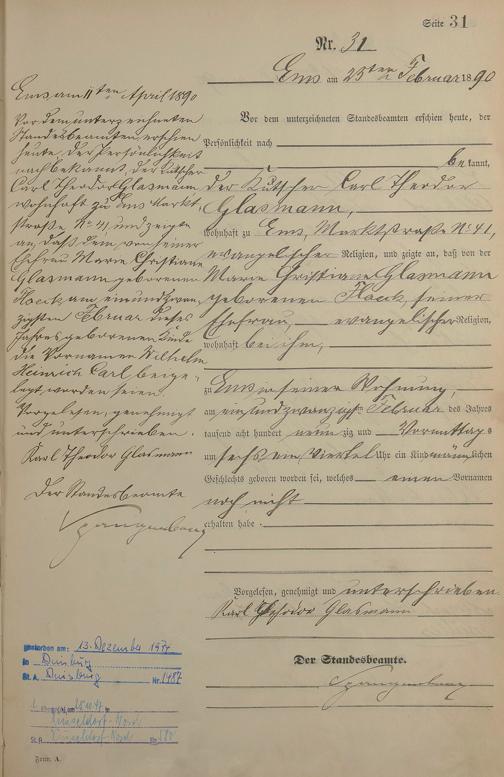 Seite 31
Nr. 31
Ems am 23ten Februar 1890
Vor dem unterzeichneten Standesbeamten erschien heute, der
Persönlichkeit nach
bekannt,
der Kutscher Carl Theodor
Glasmann,
wohnhaft zu Ems, Marktstraße No 41,
evangelischer Religion, und zeigte an, daß von der
Marie Christiane Glasmann
geborenen Hock, seiner
Ehefrau, evangelischer Religion,
wohnhaft bei ihm,
zu Ems in seiner Wohnung,
am einundzwanzigsten Februar des Jahres
tausend acht hundert neunzig und Vormittags
um sechs ein Viertel Uhr ein Kind männlichen
Geschlechts geboren worden sei, welches einen Vornamen
noch nicht
erhalten habe.
Vorgelesen, genehmigt und unterschrieben
Karl Theodor Glasmann
Der Standesbeamte.
Spangenberg
Ems am 11ten April 1890
Vor dem unterzeichneten
Standesbeamten erschien
heute, der Persönlichkeit
nach bekannt, der Kutscher
Carl Theodor Glasmann
wohnhaft zu Ems Markt-
straße No 41, und zeigte
an, daß dem von seiner
Ehefrau Marie Christiane
Glasmann geborenen
Hock am einundzwan-
zigsten Februar dieses
Jahres geborenen Kinde
die Vornamen Wilhelm
Heinrich Carl beige-
legt worden seien.
Vorgelesen, genehmigt
und unterschrieben.
Karl Theodor Glasmann
Der Standesbeamte
Spangenberg
gestorben am: 13. Dezember 1977
in Duisburg
St. A. Duisburg Nr. 1487
Düsseldorf-Nord
St. A. Düsseldorf-Nord
Form. A.